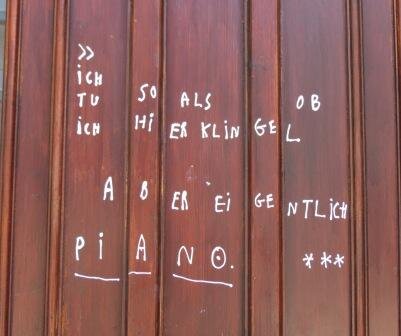 »
iCH
TU SO ALS OB
iCH HiER KLiNGEL
ABER EiGENTLiCH
PiANO. ***